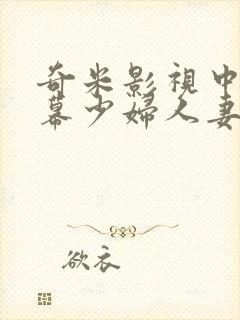 奇米影視中
幕少婦人妻
欲衣